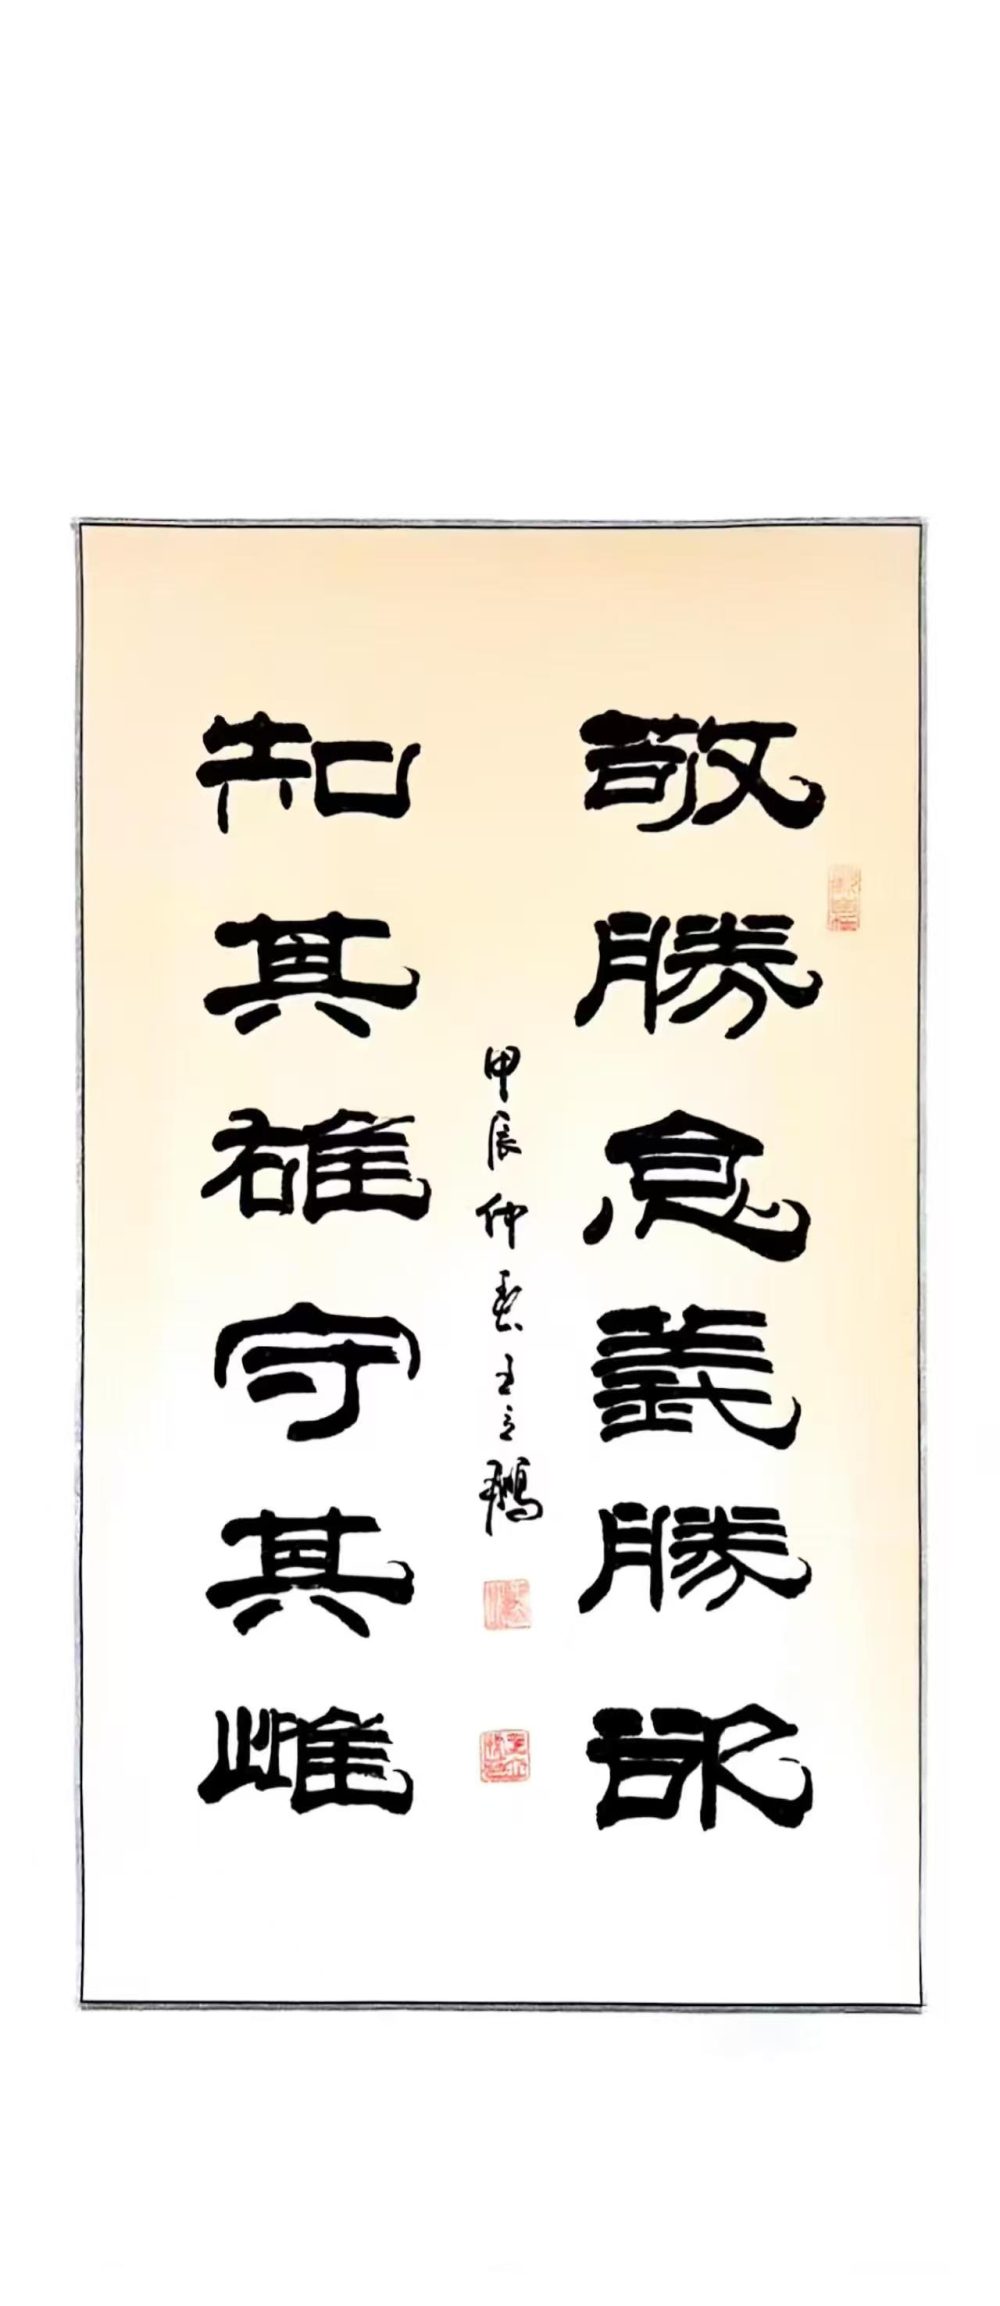 敬勝怠義勝欲
知其雄守其雌
甲辰仲春王立鵬